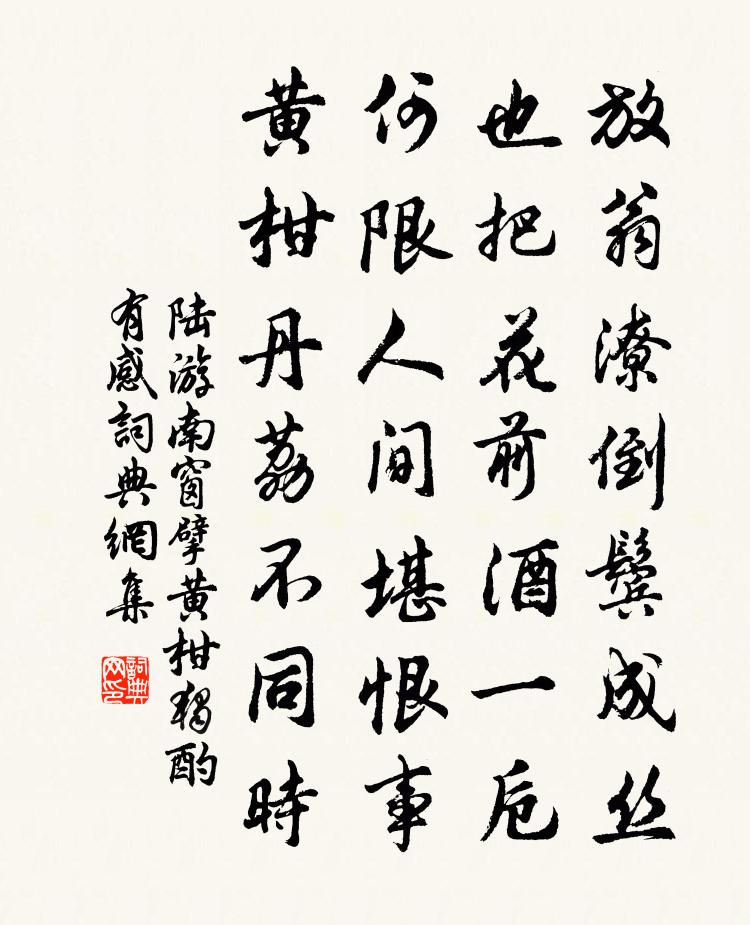 放翁潦倒鬓成丝
也把花前酒一卮
何限人间堪恨事
黄柑丹荔不同時
陆游南窗擘黄柑獨酌
有感詞典網集
詞典网印